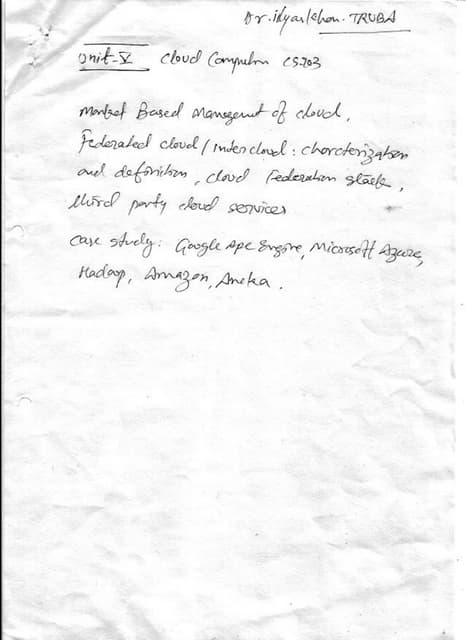 Dr. ilyas khan. TRUBA
Unit-V Cloud Computin CS-703
Market Based Management of cloud,
Federated cloud / Inter cloud : charcterization
and definition, cloud Federation stack,
third party cloud services
case study: Google App Engine, Microsoft Azure,
Hadoop, Amazon, Aneka.